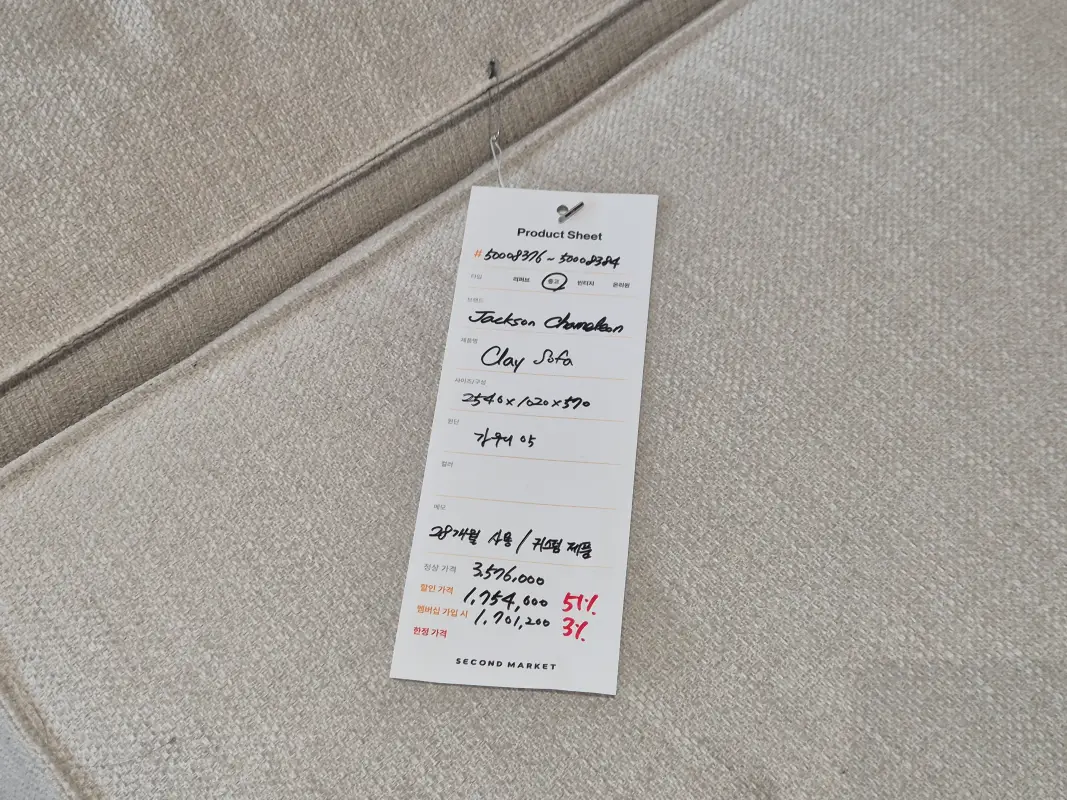 Product Sheet
# 50008376 ~ 50008384
타입 리퍼브 중고 빈티지 온라인
브랜드
Jackson Chameleon
제품명
Clay Sofa
사이즈/구성
2540 x 1020 x 570
원단
05
컬러
메모
28개월 사용 / 커스텀 제품
정상 가격 3,576,000
할인 가격 1,754,000 51%
멤버십 가입 시 1,701,200 3%
한정 가격
SECOND MARKET